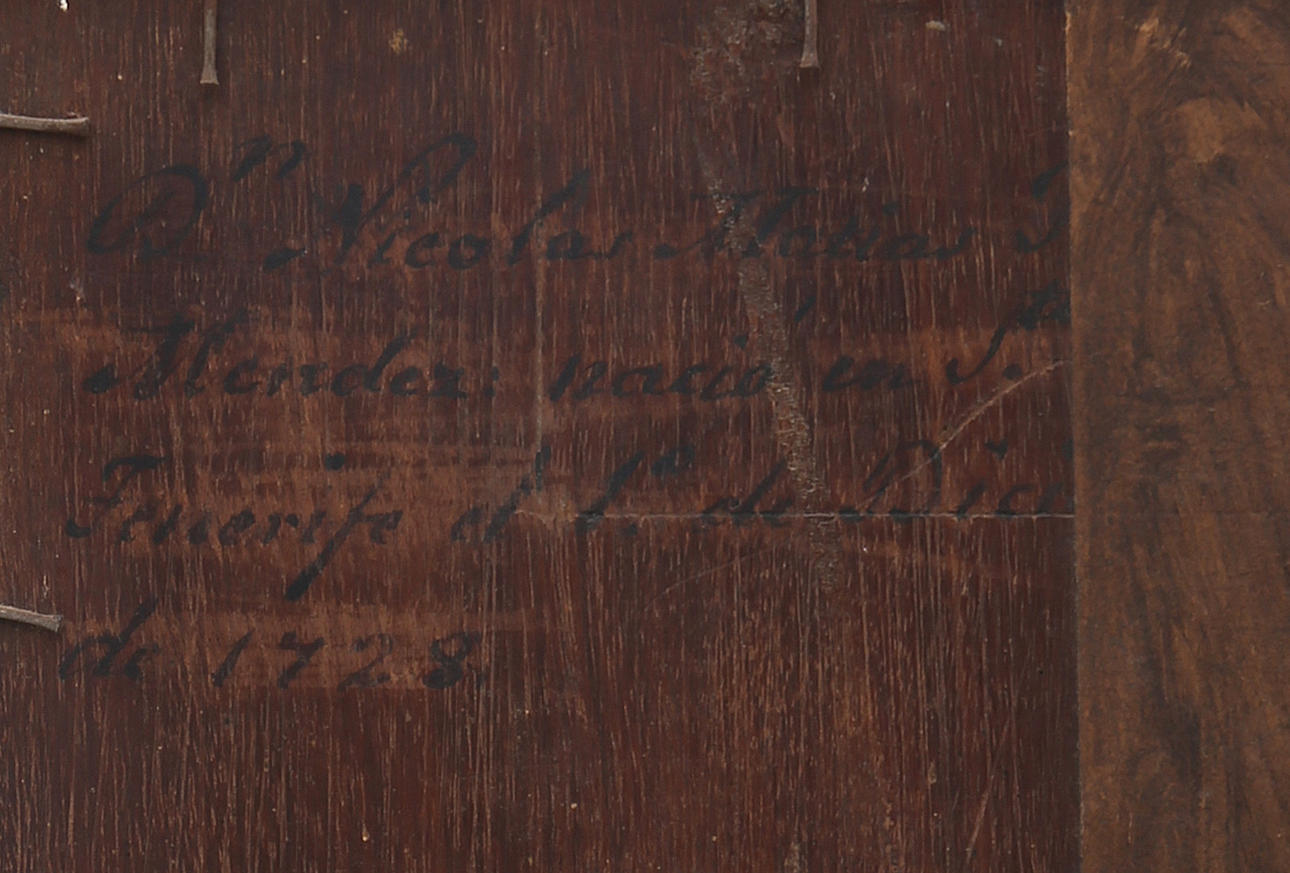 Dn Nicolas Matias
Mendez: nació en S.ta
Tenerife el 1.º de Dici
de 1728.